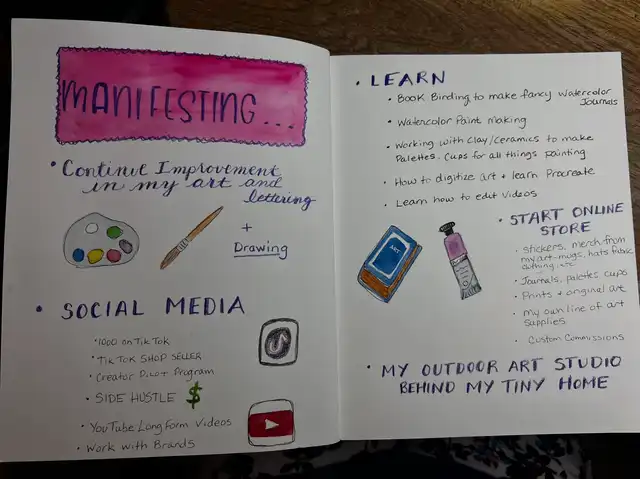 MANIFESTING...
• Continue Improvement
in my art and
lettering
+
Drawing
• SOCIAL MEDIA
• 1000 on TikTok
• TIKTOK SHOP SELLER
• Creator Pilot Program
• SIDE HUSTLE $
• YouTube Long Form Videos
• Work with Brands
• LEARN
• Book Binding to make fancy watercolor
Journals
• Watercolor Paint making
• Working with Clay/Ceramics to make
Palettes. Cups for all things painting
• How to digitize art + learn Procreate
• Learn how to edit Videos
ART
• START ONLINE
STORE
• Stickers, merch from
my art-mugs, hats fabric
clothing etc
• Journals, palettes cups
• Prints + original art
• my own line of art
supplies
• Custom Commissions
• MY OUTDOOR ART STUDIO
BEHIND MY TINY HOME